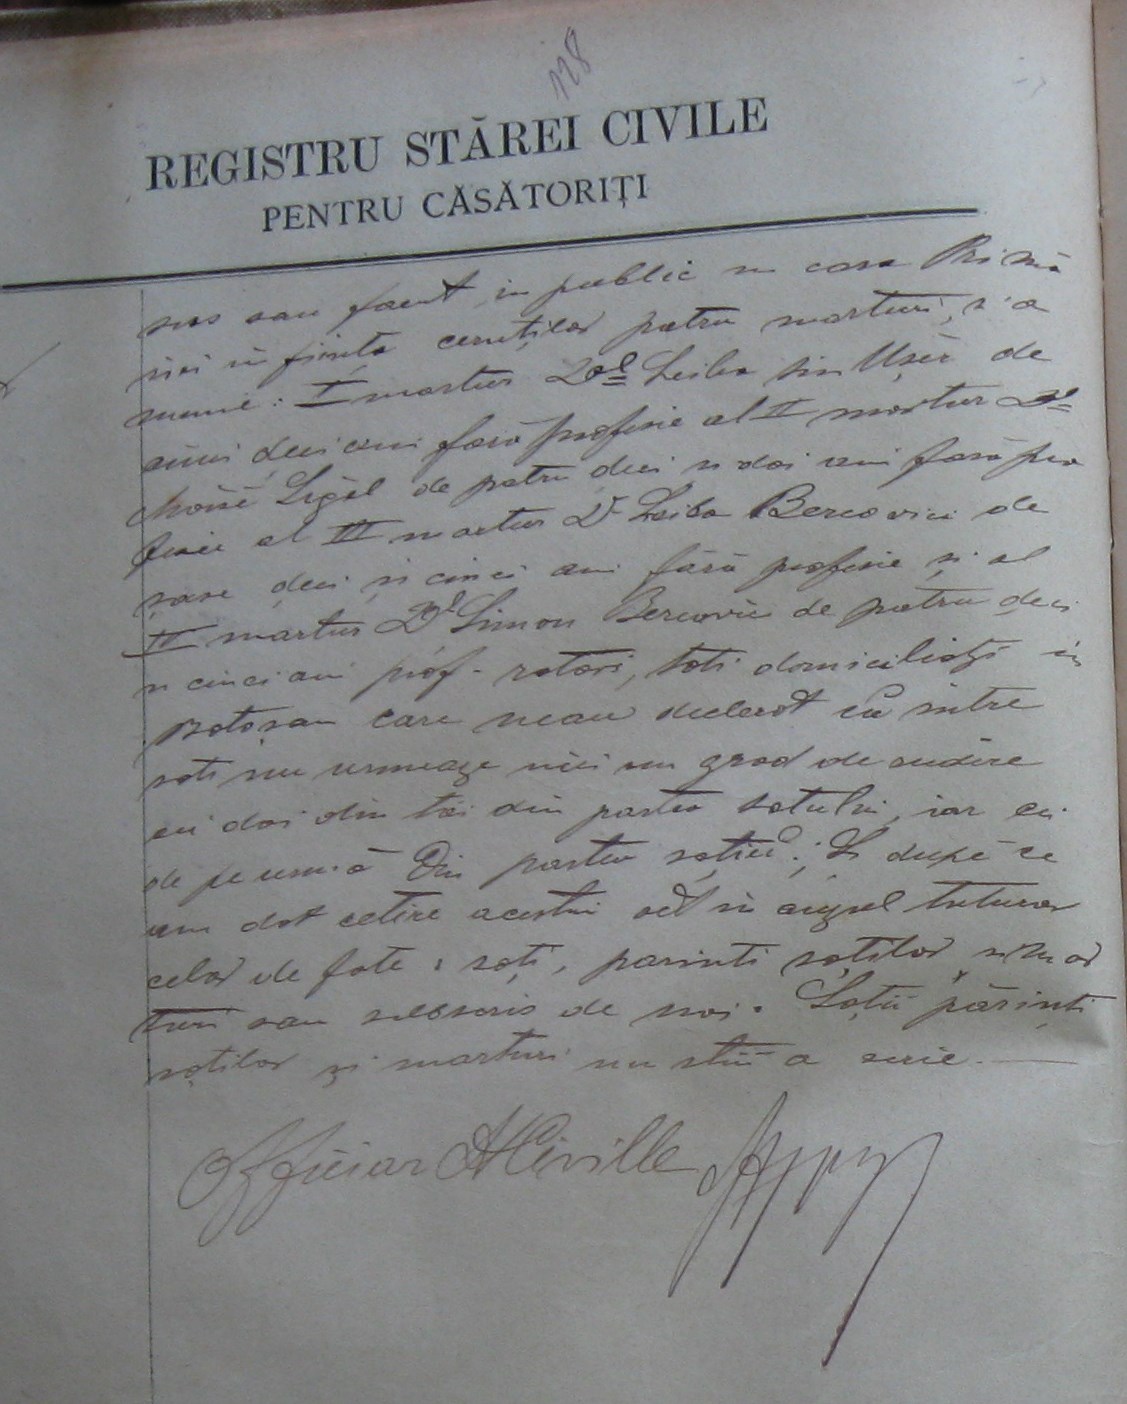 128
REGISTRU STĂREI CIVILE
PENTRU CĂSĂTORIȚI
sus sau facut in public in casa Primă
riei in ființa ceruților patru marturi, și a
nume: I martur Leiba sin Ușer de
deci ani fară profesie al II martur Dl
Moisē Sigăl de patru deci si doi ani fară pro
fesie al III martur Dl Leiba Bercovici de
șase deci și cinci ani fără profesie și al
IV martur Dl Simon Bercovici de patru deci
si cinci ani prof. rotari, toti domiciliați in
Botoșan care neau declarat că intre
soti nu urmeaze nici un grad de rudire
cei doi din tăi din partea sotului, iar cei
de pe urmă din partea soției. Și după ce
am dat cetire acestui act in auzul tuturor
celor de fate: soți, parinti soților si mar
turi sau subscris de noi. Soții părinți
soților și marturi nu stiu a scrie.
Officiar St Civille